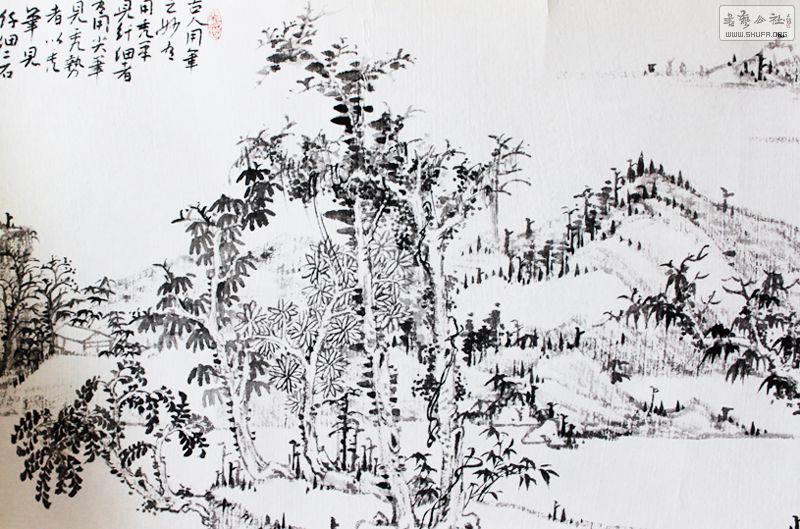 古人用筆
之妙有
用禿筆
見纤细者
有用尖筆
見禿勢
者以是
筆見
仔细二石
書藝公社
WWW.SHUFA.ORG